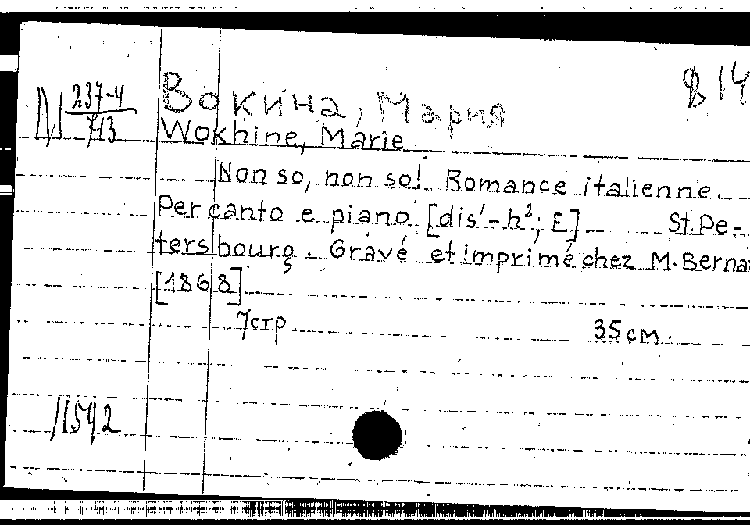 В 14
237-4
713
Вокина, Мария
Wokhine, Marie
Non so, non so! Romance italienne.
Per canto e piano [dis'-h²; E] St. Pe-
tersbourg. Gravé et imprimé chez M. Berna
[1868]
7 стр 35 см.
11592